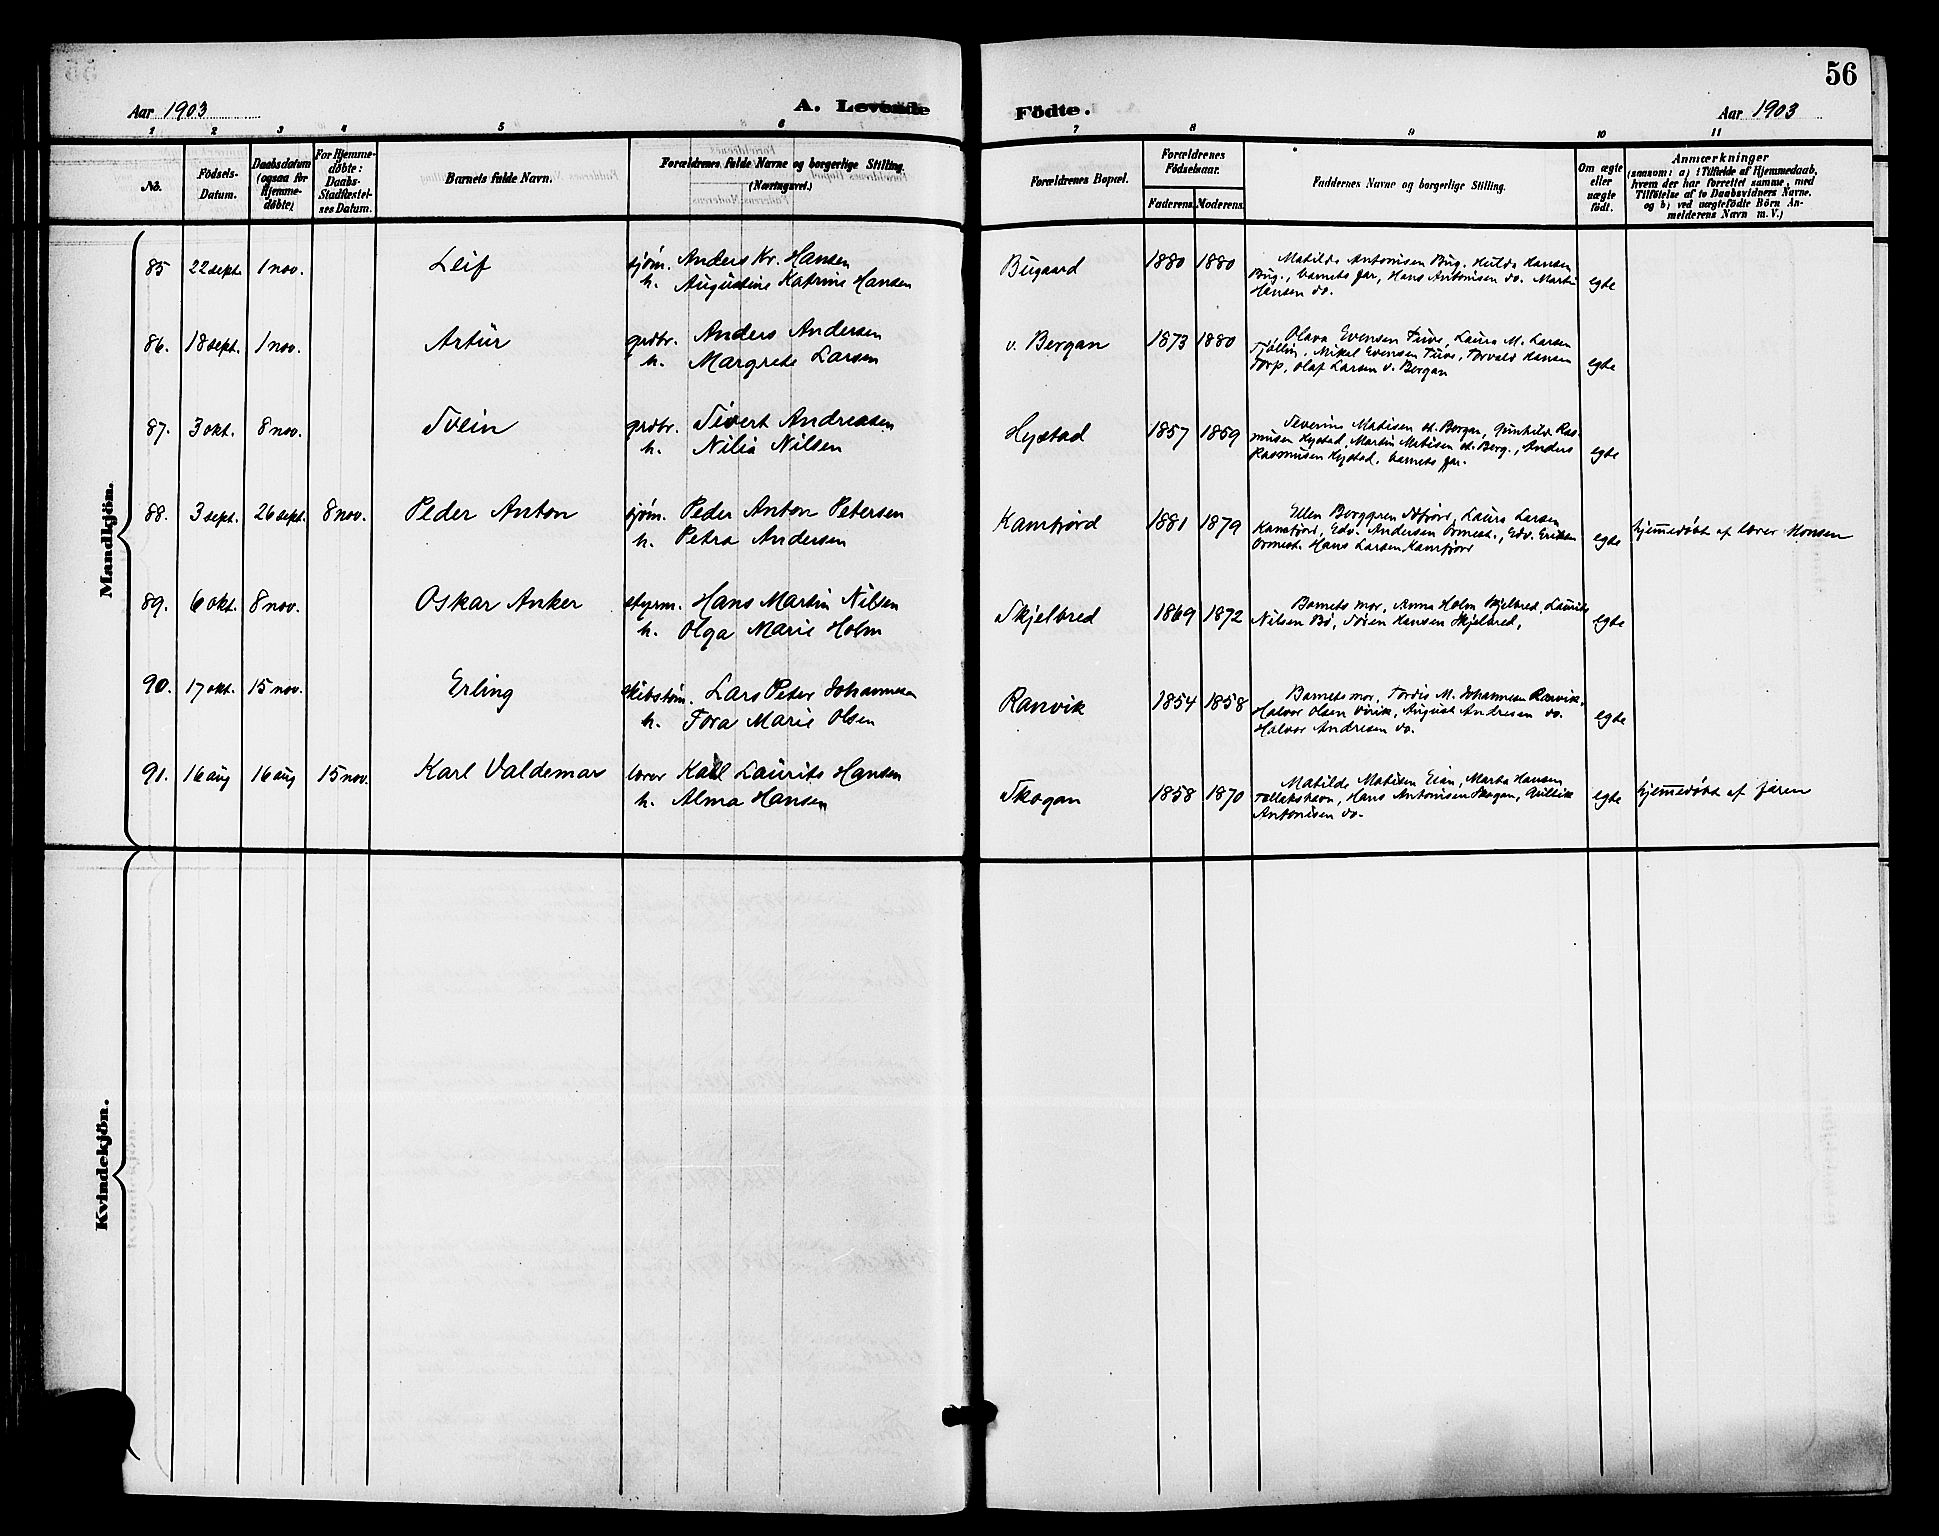 56
Aar 1903
A. Levende
Födte.
Aar 1903
1 2 3 4 5 6 7 8 9 10 11
No.
Födsels-
Datum.
Daabsdatum
(ogsaa for
Hjemme-
döbte)
For Hjemme-
döbte:
Daabs-
Stadfæstel-
ses Datum.
Barnets fulde Navn.
Forældrenes fulde Navne og borgerlige Stilling.
(Næringsvei.)
Forældrenes Bopæl.
Forældrenes
Födselsaar.
Faderens. Moderens.
Faddernes Navne og borgerlige Stilling.
Om ægte
eller
uægte
födt.
Anmærkninger
(saasom: a) i Tilfælde af Hjemmedaab,
hvem der har forrettet samme, med
Tilföielse af to Daabsvidners Navne,
og b) ved uægtefödte Börn An-
melderens Navn m. V.)
Mandkjön.
85 22 sept. 1 nov. Leif
sjøm. Anders Kr. Hansen
h. Augustine Katrine Hansen
Bugaard 1880 1880
Matilde Antonisen Bug. Hulda Hansen
Bug., barnets far, Hans Antonisen do. Martin
Hansen do.
egte
86. 18 sept. 1 nov. Artur
grdbr. Anders Andersen
h. Margrete Larsen
v. Bergan 1873 1880
Olava Evensen Tuve, Laura M. Larsen
Tjølling, Mikal Evensen Tuve, Torvald Hansen
Torp, Olaf Larsen v. Bergan
egte
87. 3 okt. 8 nov. Svein
grdbr. Sivert Andreasen
h. Nilia Nilsen
Hystad 1857 1859
Severine Matisen øt. Bergan, Gunhild Ras-
musen Hystad, Martin Matisen øt. Berg., Anders
Rasmusen Hystad, barnets far.
egte
88. 3 sept. 26 sept. 8 nov. Peder Anton
sjøm. Peder Anton Petersen
h. Petra Andersen
Kamfjord 1881 1879
Ellen Berggren, Laura Larsen
Kamfjord, Edv. Andersen Ormest., Edv. Eriksen
Ormest. Hans Larsen Kamfjord
egte
hjemmedøbt af lærer Monsen
89. 6 okt. 8 nov. Oskar Anker
styrm. Hans Martin Nilsen
h. Olga Marie Holm
Skjelbred 1869 1872
Barnets mor, Anna Holm Skjelbred, Laurits
Nilsen Bø, Søren Hansen Skjelbred,
egte
90. 17 okt. 15 nov. Erling
skibstøm. Lars Peter Johannesen
h. Tora Marie Olsen
Ranvik 1854 1858
Barnets mor, Tordis M. Johannesen Ranvik,
Halvor Olsen Virik, August Andresen do.
Halvor Andresen do.
egte
91. 16 aug 16 aug 15 nov. Karl Valdemar
lærer Karl Laurits Hansen
h. Alma Hansen
Skogan 1858 1870
Matilde Matisen Eian, Marta Hansen
Tallakshavn, Hans Antonisen Skogan, Gullik
Antonisen do.
egte
hjemmedøbt af faren
Kvindekjön.